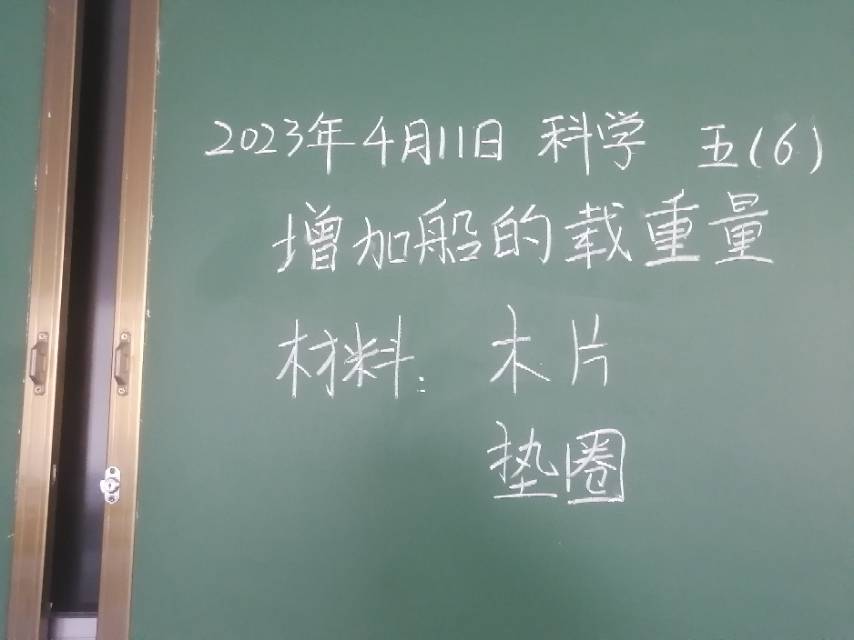 2023年4月11日 科学 五(6)
增加船的载重量
材料: 木片
垫圈